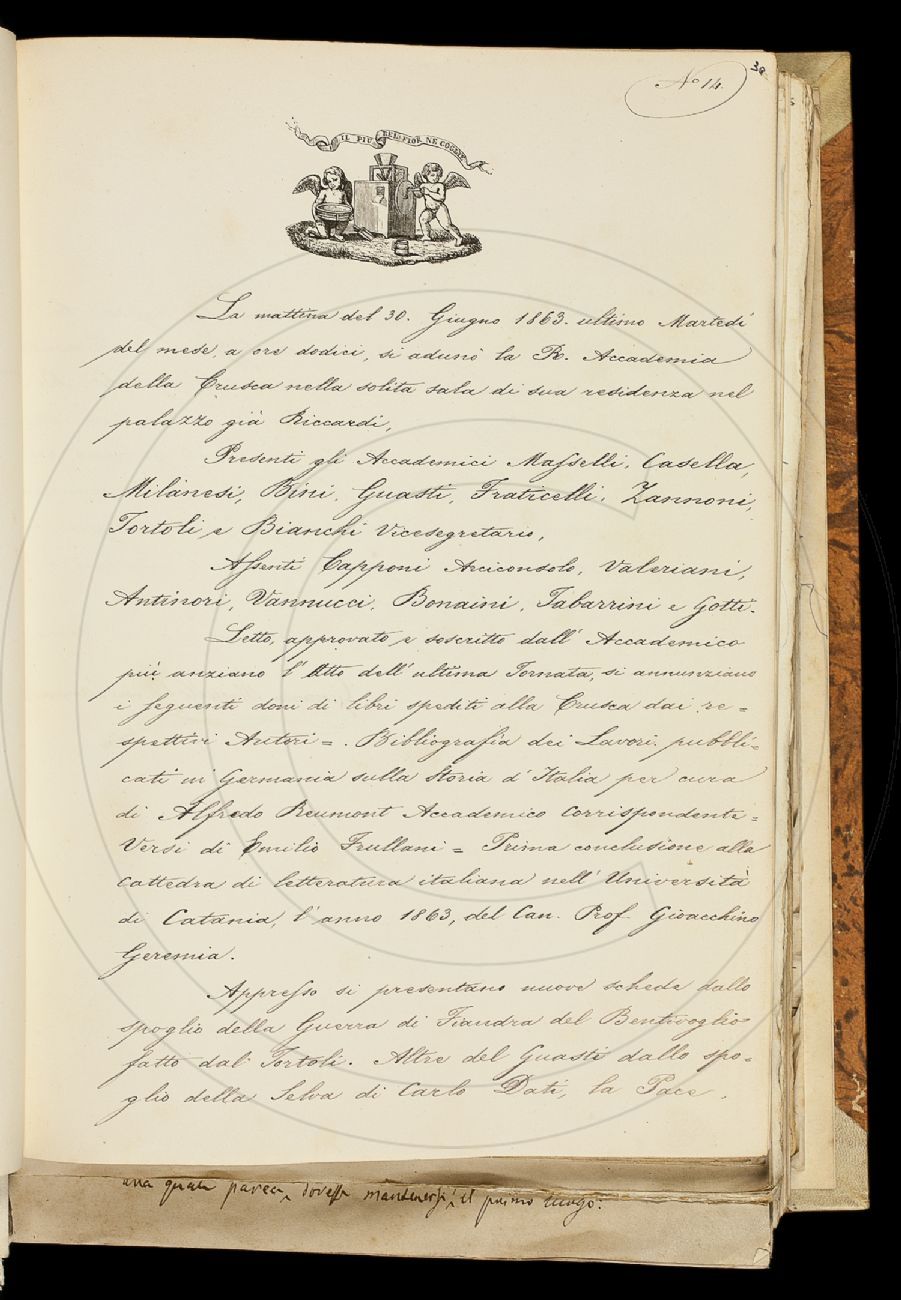 38
N.º 14.
IL PIÙ BEL FIOR NE COGLIE
La mattina del 30. Giugno 1863. ultimo Martedì
del mese, a ore dodici, si adunò la R. Accademia
della Crusca nella solita sala di sua residenza nel
palazzo già Riccardi,
Presenti gli Accademici Masselli, Casella,
Milanesi, Bini, Guasti, Fraticelli, Zannoni,
Tortoli e Bianchi Vicesegretario,
Assenti Capponi Arciconsolo, Valeriani,
Antinori, Vannucci, Bonaini, Tabarrini e Gotti.
Letto, approvato e soscritto dall' Accademico
più anziano l' Atto dell' ultima Tornata, si annunziano
i seguenti doni di libri spediti alla Crusca dai re=
spettivi Autori =. Bibliografia dei Lavori pubbli=
cati in Germania sulla Storia d' Italia per cura
di Alfredo Reumont Accademico Corrispondente =
Versi di Emilio Frullani = Prima conclusione alla
Cattedra di letteratura italiana nell' Università
di Catania, l' anno 1863, del Can. Prof. Gioacchino
Geremia.
Appresso si presentano nuove schede dallo
spoglio della Guerra di Fiandra del Bentivoglio
fatto dal Tortoli. Altre del Guasti dallo spo=
glio della Selva di Carlo Dati, la Pace,
una quale parea, dovesse mantenersi il primo luogo.